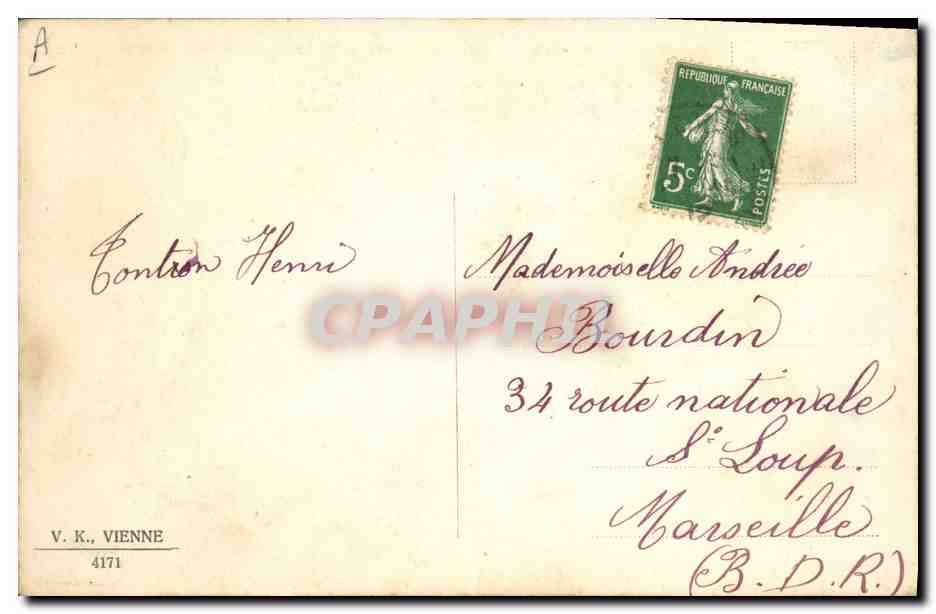 A
REPUBLIQUE FRANÇAISE
5c
POSTES
Henri
Mademoiselle Andrée
Bourdin
34 route nationale
St Loup.
Marseille
(B.D.R.)
CPAPHIL
V. K., VIENNE
4171